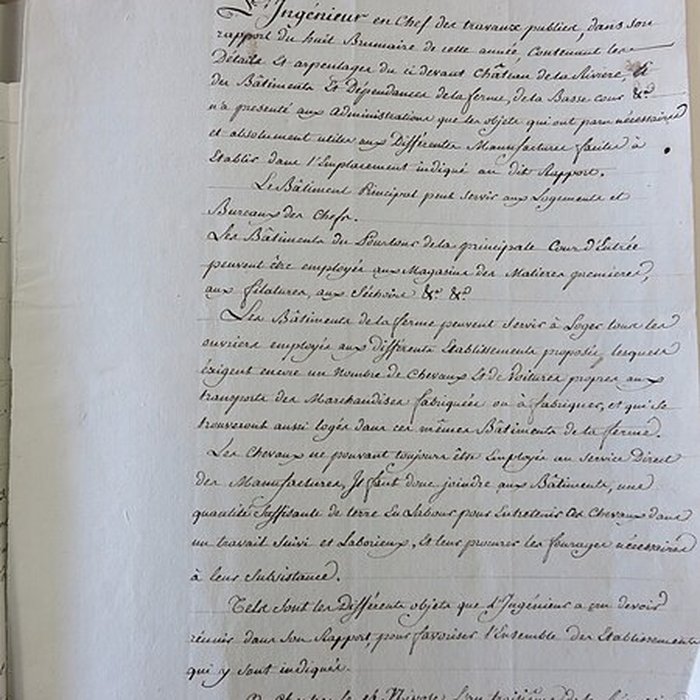 L'Ingénieur en Chef des travaux publics, dans son
rapport du huit Brumaire de cette année, Contenant les
Détails et arpentages du ci devant Château de la Rivière,
des Bâtiments et Dépendances de la ferme, de la Basse cour &a
n'a presenté aux Administrations que les objets qui ont paru nécessaires
et absolument utiles aux Différentes Manufactures faciles à
Etablir dans l'Emplacement indiqué au dit Rapport.
Le Bâtiment Principal peut servir aux Logements et
Bureaux des Chefs.
Les Bâtiments du Pourtour de la principale Cour d'Entrée
peuvent être employés aux Magasins des Matieres premieres,
aux filatures, aux Séchoirs &a &a
Les Bâtiments de la ferme peuvent servir à Loger tous les
ouvriers employés aux différents Etablissements proposés, lesquels
éxigent encore un Nombre de Chevaux et de Voitures propres aux
transports des Marchandises fabriquées ou à fabriquer, et qui se
trouveront aussi logés dans ces mêmes Bâtiments de la ferme.
Les Chevaux ne pouvant toujours être Employés au service Direct
des Manufactures, Il faut donc joindre aux Bâtiments, une
quantité suffisante de terre En Labour pour Entretenir ces Chevaux dans
un travail Suivi et Laborieux, et leur procurer les fourages nécessaires
à leur subsistance.
Tels sont les Différents objets que l'Ingénieur a cru devoir
réunir dans son Rapport pour favoriser l'Ensemble des Etablissements
qui y sont indiqués.
le Nivose l'an troisieme de